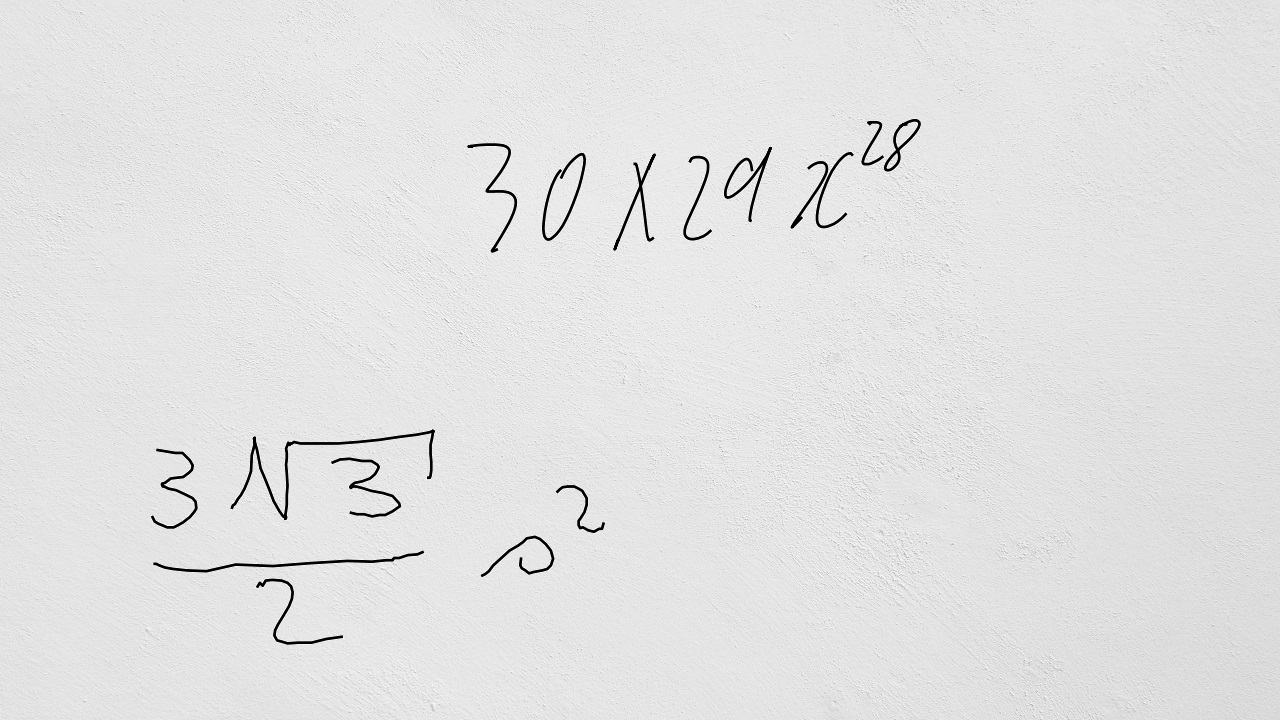 30 × 29 x^28
(3√3)/2 s^2